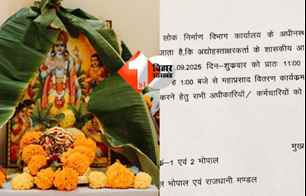 1
बिहार
लोक निर्माण विभाग कार्यालय के अधीनस्थ
जाता है,कि अद्योहस्ताक्षरकर्ता के शासकीय आ
.09.2025 दिन–शुक्रवार को प्रातः 11:00
1:00 बजे से महाप्रसाद वितरण कार्यक्रम
करने हेतु सभी अधीकारियों/ कर्मचारियों को
–1 एवं 2 भोपाल
भोपाल एवं राजधानी मण्डल